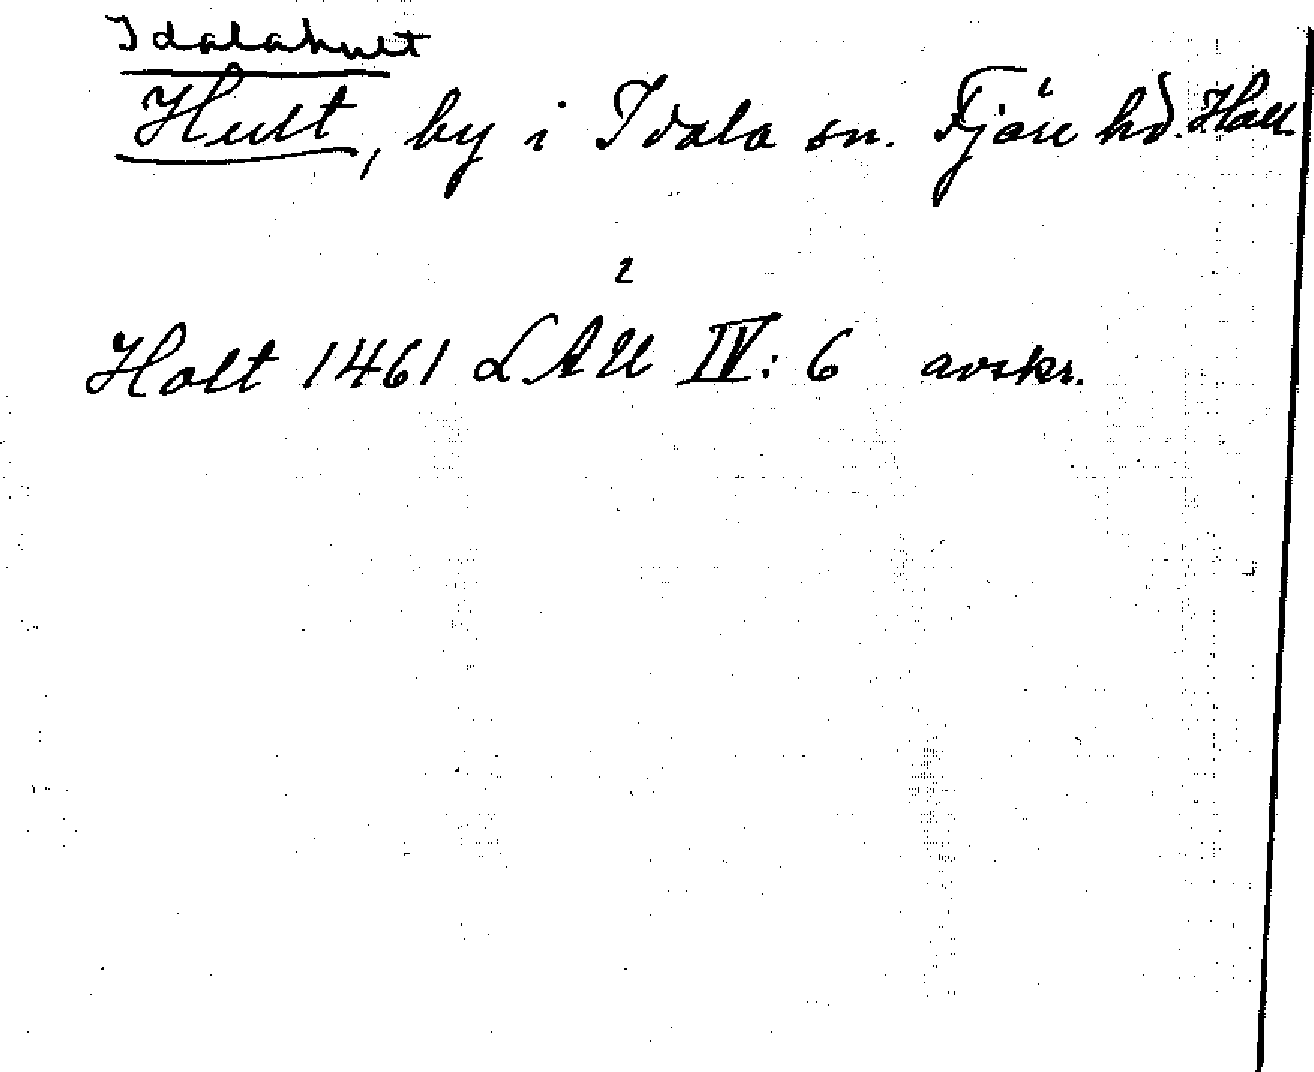 Idalahult
Hult, by i Idala sn. Fjäre hd. Hall.
2
Holt 1461 LAU IV: 6 avskr.